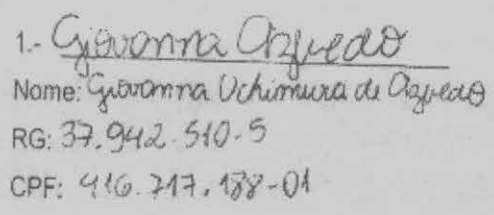 1.- Giovanna Azevedo
Nome: Giovanna Uchimura de Azevedo
RG: 37.942.510-5
CPF: 416.717.188-01